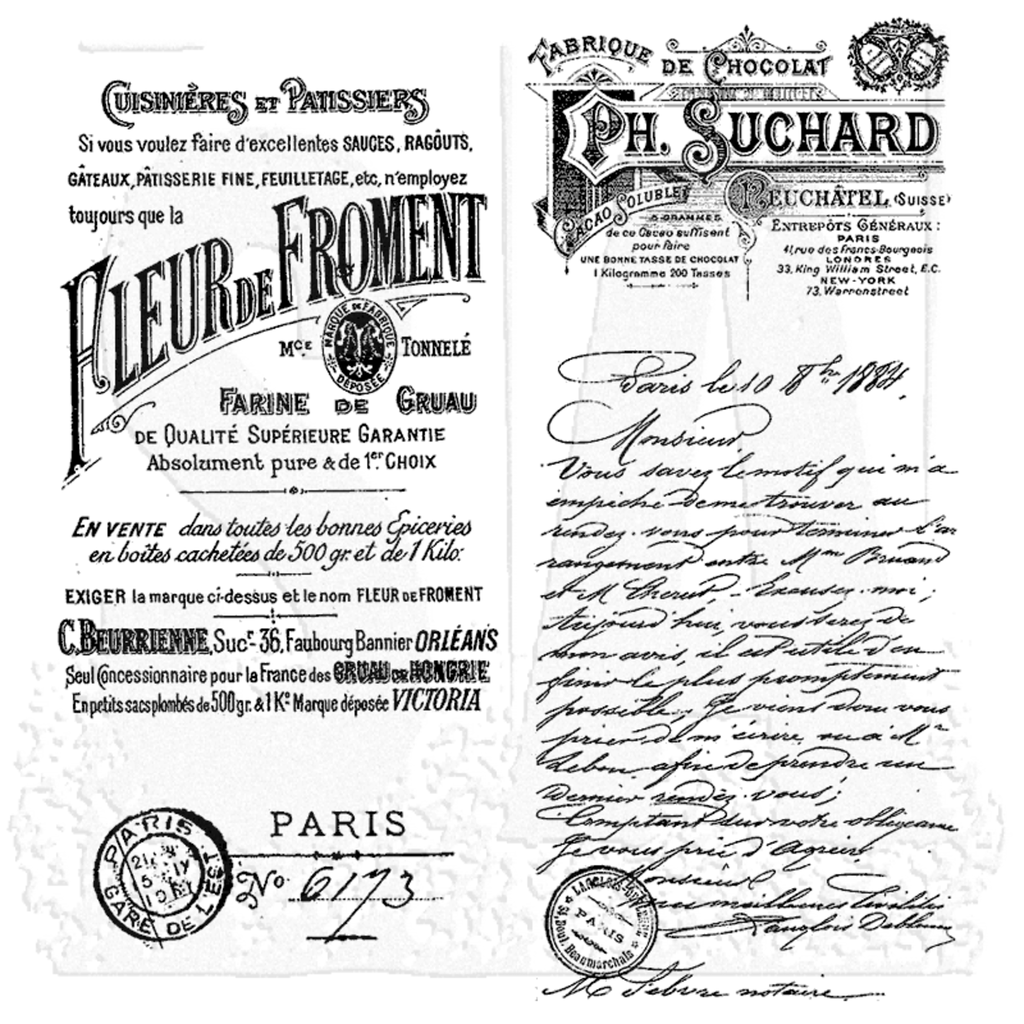 CUISINIÈRES ET PATISSIERS
Si vous voulez faire d'excellentes SAUCES, RAGOÛTS,
GÂTEAUX, PÂTISSERIE FINE, FEUILLETAGE, etc, n'employez
toujours que la
FLEUR DE FROMENT
MARQUE DE FABRIQUE
DÉPOSÉE
Mce TONNELÉ
FARINE DE GRUAU
DE QUALITÉ SUPÉRIEURE GARANTIE
Absolument pure & de 1er CHOIX
EN VENTE dans toutes les bonnes Epiceries
en boîtes cachetées de 500 gr. et de 1 Kilo.
EXIGER la marque ci-dessus et le nom FLEUR DE FROMENT
C. BEURRIENNE, Sucr. 36, Faubourg Bannier ORLÉANS
Seul Concessionnaire pour la France des GRUAU DE HONGRIE
En petits sacs plombés de 500 gr. & 1 Ko Marque déposée VICTORIA
PARIS
GARE DE L'EST
PARIS
No. 6173
FABRIQUE DE CHOCOLAT
PH. SUCHARD
NEUCHÂTEL (SUISSE)
CACAO SOLUBLE
5 GRAMMES
de ce Cacao suffisent
pour faire
UNE BONNE TASSE DE CHOCOLAT
1 Kilogramme 200 Tasses
ENTREPÔTS GÉNÉRAUX :
PARIS
41, rue des Francs-Bourgeois
LONDRES
33, King William Street, E.C.
NEW-YORK
73, Warrenstreet
Paris le 10 8bre 1884.
Monsieur
Vous savez le motif qui m'a
empêché de me trouver au
rendez-vous pour terminer l'ar
rangement entre Mm
et M Excusez-moi;
Aujourd'hui, vous serez de
mon avis, il est utile d'en
finir le plus promptement
possible; Je viens donc vous
prier de m'écrire, ou à Mr
Lebon, afin de prendre un
dernier rendez-vous;
Comptant sur votre obligeance
Je vous prie d'Agréer
Monsieur
PARIS
Bd Beaumarchais
M notaire